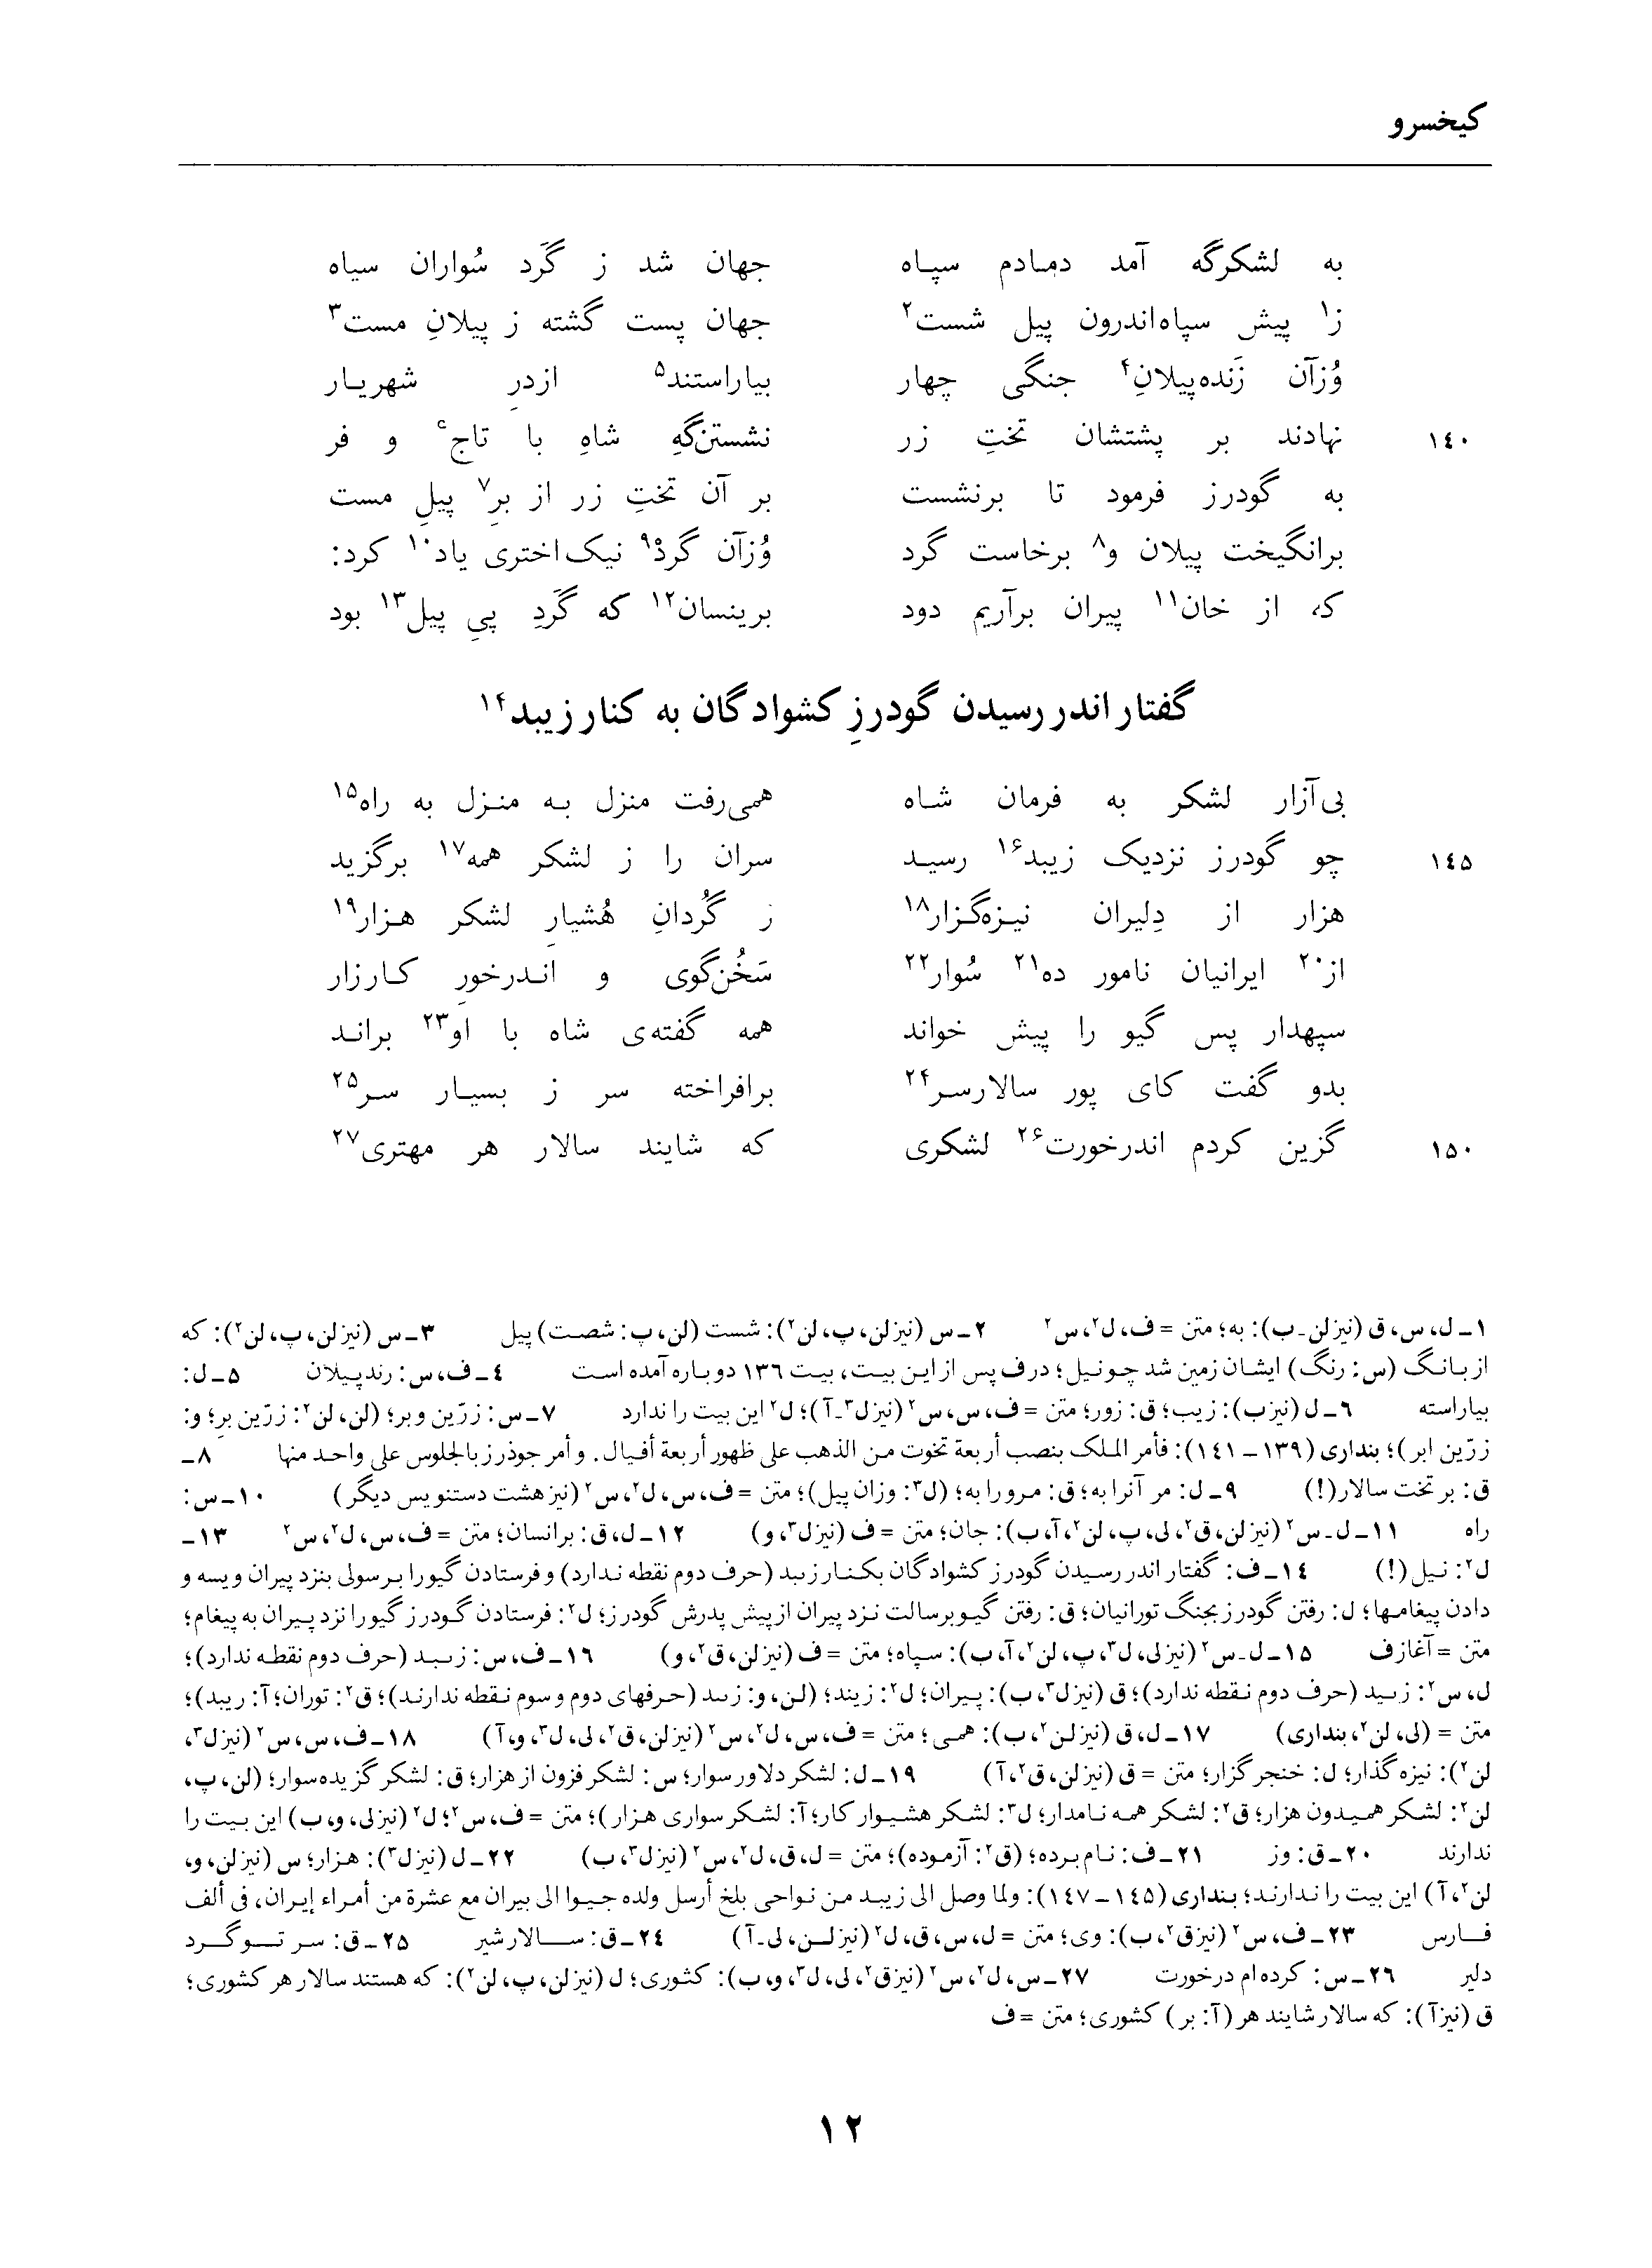 کیخسرو
به لشکرگه آمد دمادم سپاه جهان شد ز گَرد سُواران سیاه
ز۱ پیش سپاه‌اندرون پیل شست۲ جهان پست گشته ز پیلانِ مست۳
وُزآن زَنده‌پیلانِ۴ جنگی چهار بیاراستند۵ ازدرِ شهریار
۱۴۰ نهادند بر پشتشان تختِ زر نشستن‌گهِ شاهِ با تاج۶ و فر
به گودرز فرمود تا برنشست بر آن تختِ زر از برِ۷ پیلِ مست
برانگیخت پیلان و۸ برخاست گرد وُزآن گردْ۹ نیک‌اختری یاد۱۰ کرد:
که از خان۱۱ پیران برآریم دود برینسان۱۲ که گَردِ پیِ پیل۱۳ بود
گفتار اندر رسیدن گودرزِ کشوادگان به کنار زیبد۱۴
بی‌آزار لشکر به فرمان شاه همی‌رفت منزل به منزل به راه۱۵
۱۴۵ چو گودرز نزدیک زیبد۱۶ رسید سران را ز لشکر همه۱۷ برگزید
هزار از دِلیران نیزه‌گزار۱۸ ز گُردانِ هُشیارِ لشکر هزار۱۹
از۲۰ ایرانیان نامور ده۲۱ سُوار۲۲ سَخُن‌گوی و اندرخورِ کارزار
سپهدار پس گیو را پیش خواند همه گفته‌ی شاه با او۲۳ براند
بدو گفت کای پور سالارسر۲۴ برافراخته سر ز بسیار سر۲۵
۱۵۰ گزین کردم اندرخورت۲۶ لشکری که شایند سالار هر مهتری۲۷
۱ـ ل، س، ق (نیز لن ـ ب): به؛ متن = ف، ل۲، س۲ ۲ـ س (نیز لن، پ، لن۲): شست (لن، پ: شصت) پیل ۳ـ س (نیز لن، پ، لن۲): که
از بانگ (س: رنگ) ایشان زمین شد چو نیل؛ در ف پس از این بیت، بیت ۱۳۶ دوباره آمده است ۴ـ ف، س: رندپیلان ۵ـ ل:
بیاراسته ۶ـ ل (نیز ب): زیب؛ ق: زور؛ متن = ف، س، س۲ (نیز ل۳ـ آ)؛ ل۲ این بیت را ندارد ۷ـ س: زرّین و بر؛ (لن، لن۲: زرّین برِ؛ و:
زرّین ابر)؛ بنداری (۱۳۹ – ۱۴۱): فأمر الملک بنصب أربعة تخوت من الذهب علی ظهور أربعة أفیال. وأمر جوذرز بالجلوس علی واحد منها ۸ـ
ق: بر تخت سالار(!) ۹ـ ل: مر آنرا به؛ ق: مرو را به؛ (ل۳: وزان پیل)؛ متن = ف، س، ل۲، س۲ (نیز هشت دستنویس دیگر) ۱۰ـ س:
راه ۱۱ـ ل ـ س۲ (نیز لن، ق۲، لی، پ، لن۲، آ، ب): جان؛ متن = ف (نیز ل۳، و) ۱۲ـ ل، ق: برانسان؛ متن = ف، س، ل۲، س۲ ۱۳ـ
ل۲: نیل(!) ۱۴ـ ف: گفتار اندر رسیدن گودرز کشوادگان بکنار زبید (حرف دوم نقطه ندارد) و فرستادن گیو را برسولی بنزد پیران ویسه و
دادن پیغامها؛ ل: رفتن گودرز بجنگ تورانیان؛ ق: رفتن گیو برسالت نزد پیران از پیش پدرش گودرز؛ ل۲: فرستادن گودرز گیو را نزد پیران به پیغام؛
متن = آغاز ف ۱۵ـ ل ـ س۲ (نیز لی، ل۳، پ، لن۲، آ، ب): سپاه؛ متن = ف (نیز لن، ق۲، و) ۱۶ـ ف، س: زبید (حرف دوم نقطه ندارد)؛
ل، س۲: زبید (حرف دوم نقطه ندارد)؛ ق (نیز ل۳، ب): پیران؛ ل۲: زیند؛ (لن، و: زبید (حرفهای دوم و سوم نقطه ندارند)؛ ق۲: توران؛ آ: ریبد)؛
متن = (لی، لن۲، بنداری) ۱۷ـ ل، ق (نیز لن۲، ب): همی؛ متن = ف، س، ل۲، س۲ (نیز لن، ق۲، لی، ل۳، و، آ) ۱۸ـ ف، س، س۲ (نیز ل۳،
لن۲): نیزه گذار؛ ل: خنجر گزار؛ متن = ق (نیز لن، ق۲، آ) ۱۹ـ ل: لشکر دلاور سوار؛ س: لشکر فزون از هزار؛ ق: لشکر گزیده سوار؛ (لن، پ،
لن۲: لشکر همیدون هزار؛ ق۲: لشکر همه نامدار؛ ل۳: لشکر هشیوار کار؛ آ: لشکر سواری هزار)؛ متن = ف، س۲؛ ل۲ (نیز لی، و، ب) این بیت را
ندارند ۲۰ـ ق: وز ۲۱ـ ف: نام برده؛ (ق۲: آزموده)؛ متن = ل، ق، ل۲، س۲ (نیز ل۳، ب) ۲۲ـ ل (نیز ل۳): هزار؛ س (نیز لن، و،
لن۲، آ) این بیت را ندارند؛ بنداری (۱۴۵ – ۱۴۷): ولما وصل الی زیبد من نواحی بلخ أرسل ولده جیوا الی بیران مع عشرة من أمراء إیران، فی ألف
فارس ۲۳ـ ف، س۲ (نیز ق۲، ب): وی؛ متن = ل، س، ق، ل۲ (نیز لن، لی ـ آ) ۲۴ـ ق: سالار شیر ۲۵ـ ق: سر تو گرد
دلیر ۲۶ـ س: کرده‌ام درخورت ۲۷ـ س، ل۲، س۲ (نیز ق۲، لی، ل۳، و، ب): کشوری؛ ل (نیز لن، پ، لن۲): که هستند سالار هر کشوری؛
ق (نیز آ): که سالار شایند هر (آ: بر) کشوری؛ متن = ف
۱۲